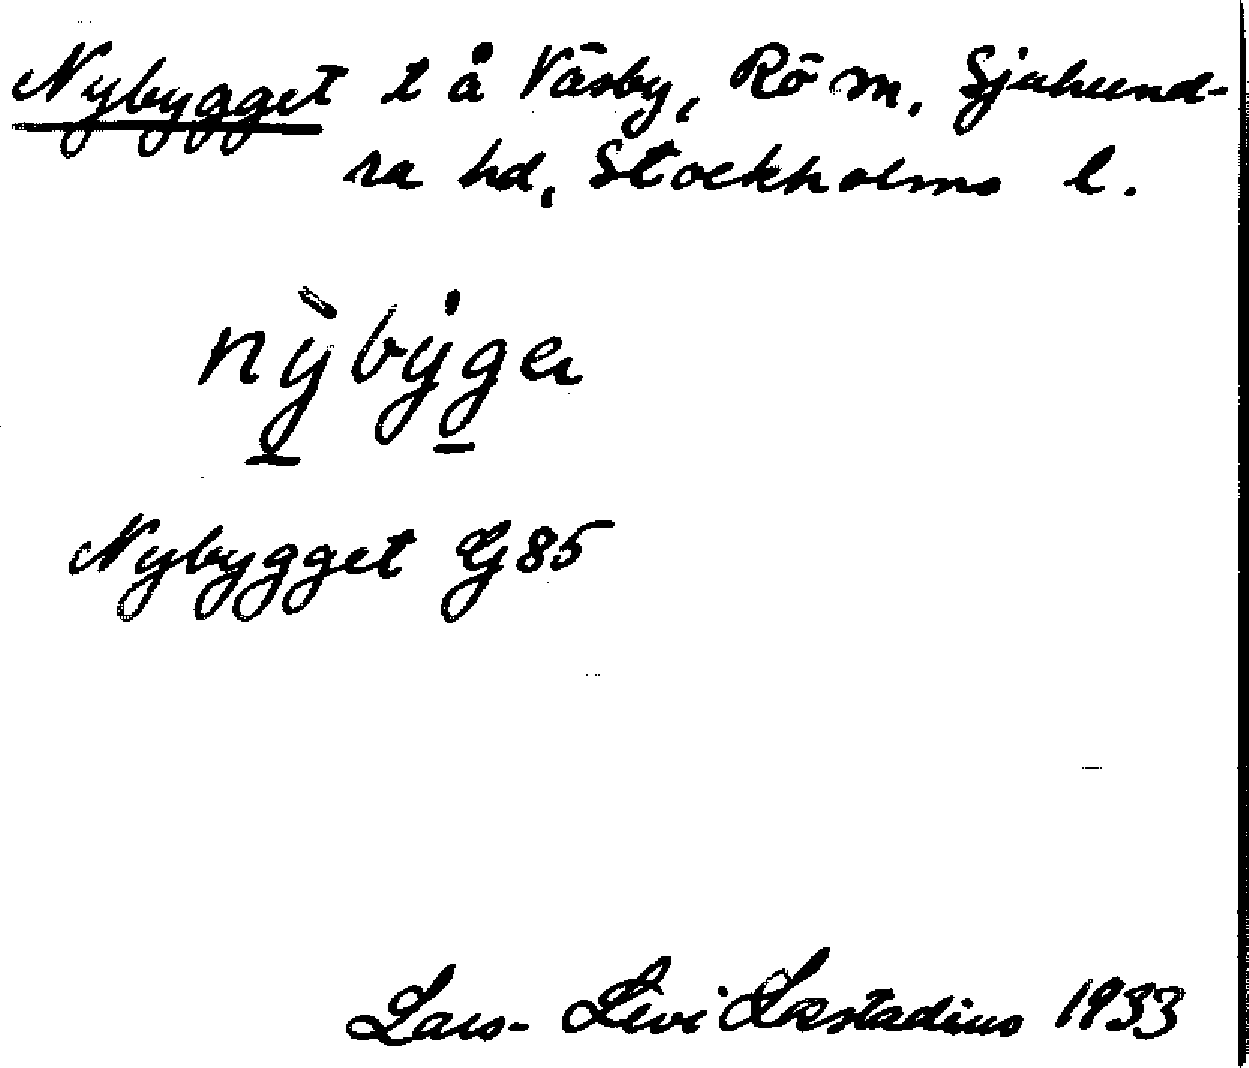 Nybygget t å Väsby, Rö sn, Sjuhund-
ra hd, Stockholms l.
nỳbyge
Nybygget Gj 85
Lars-Levi Læstadius 1933